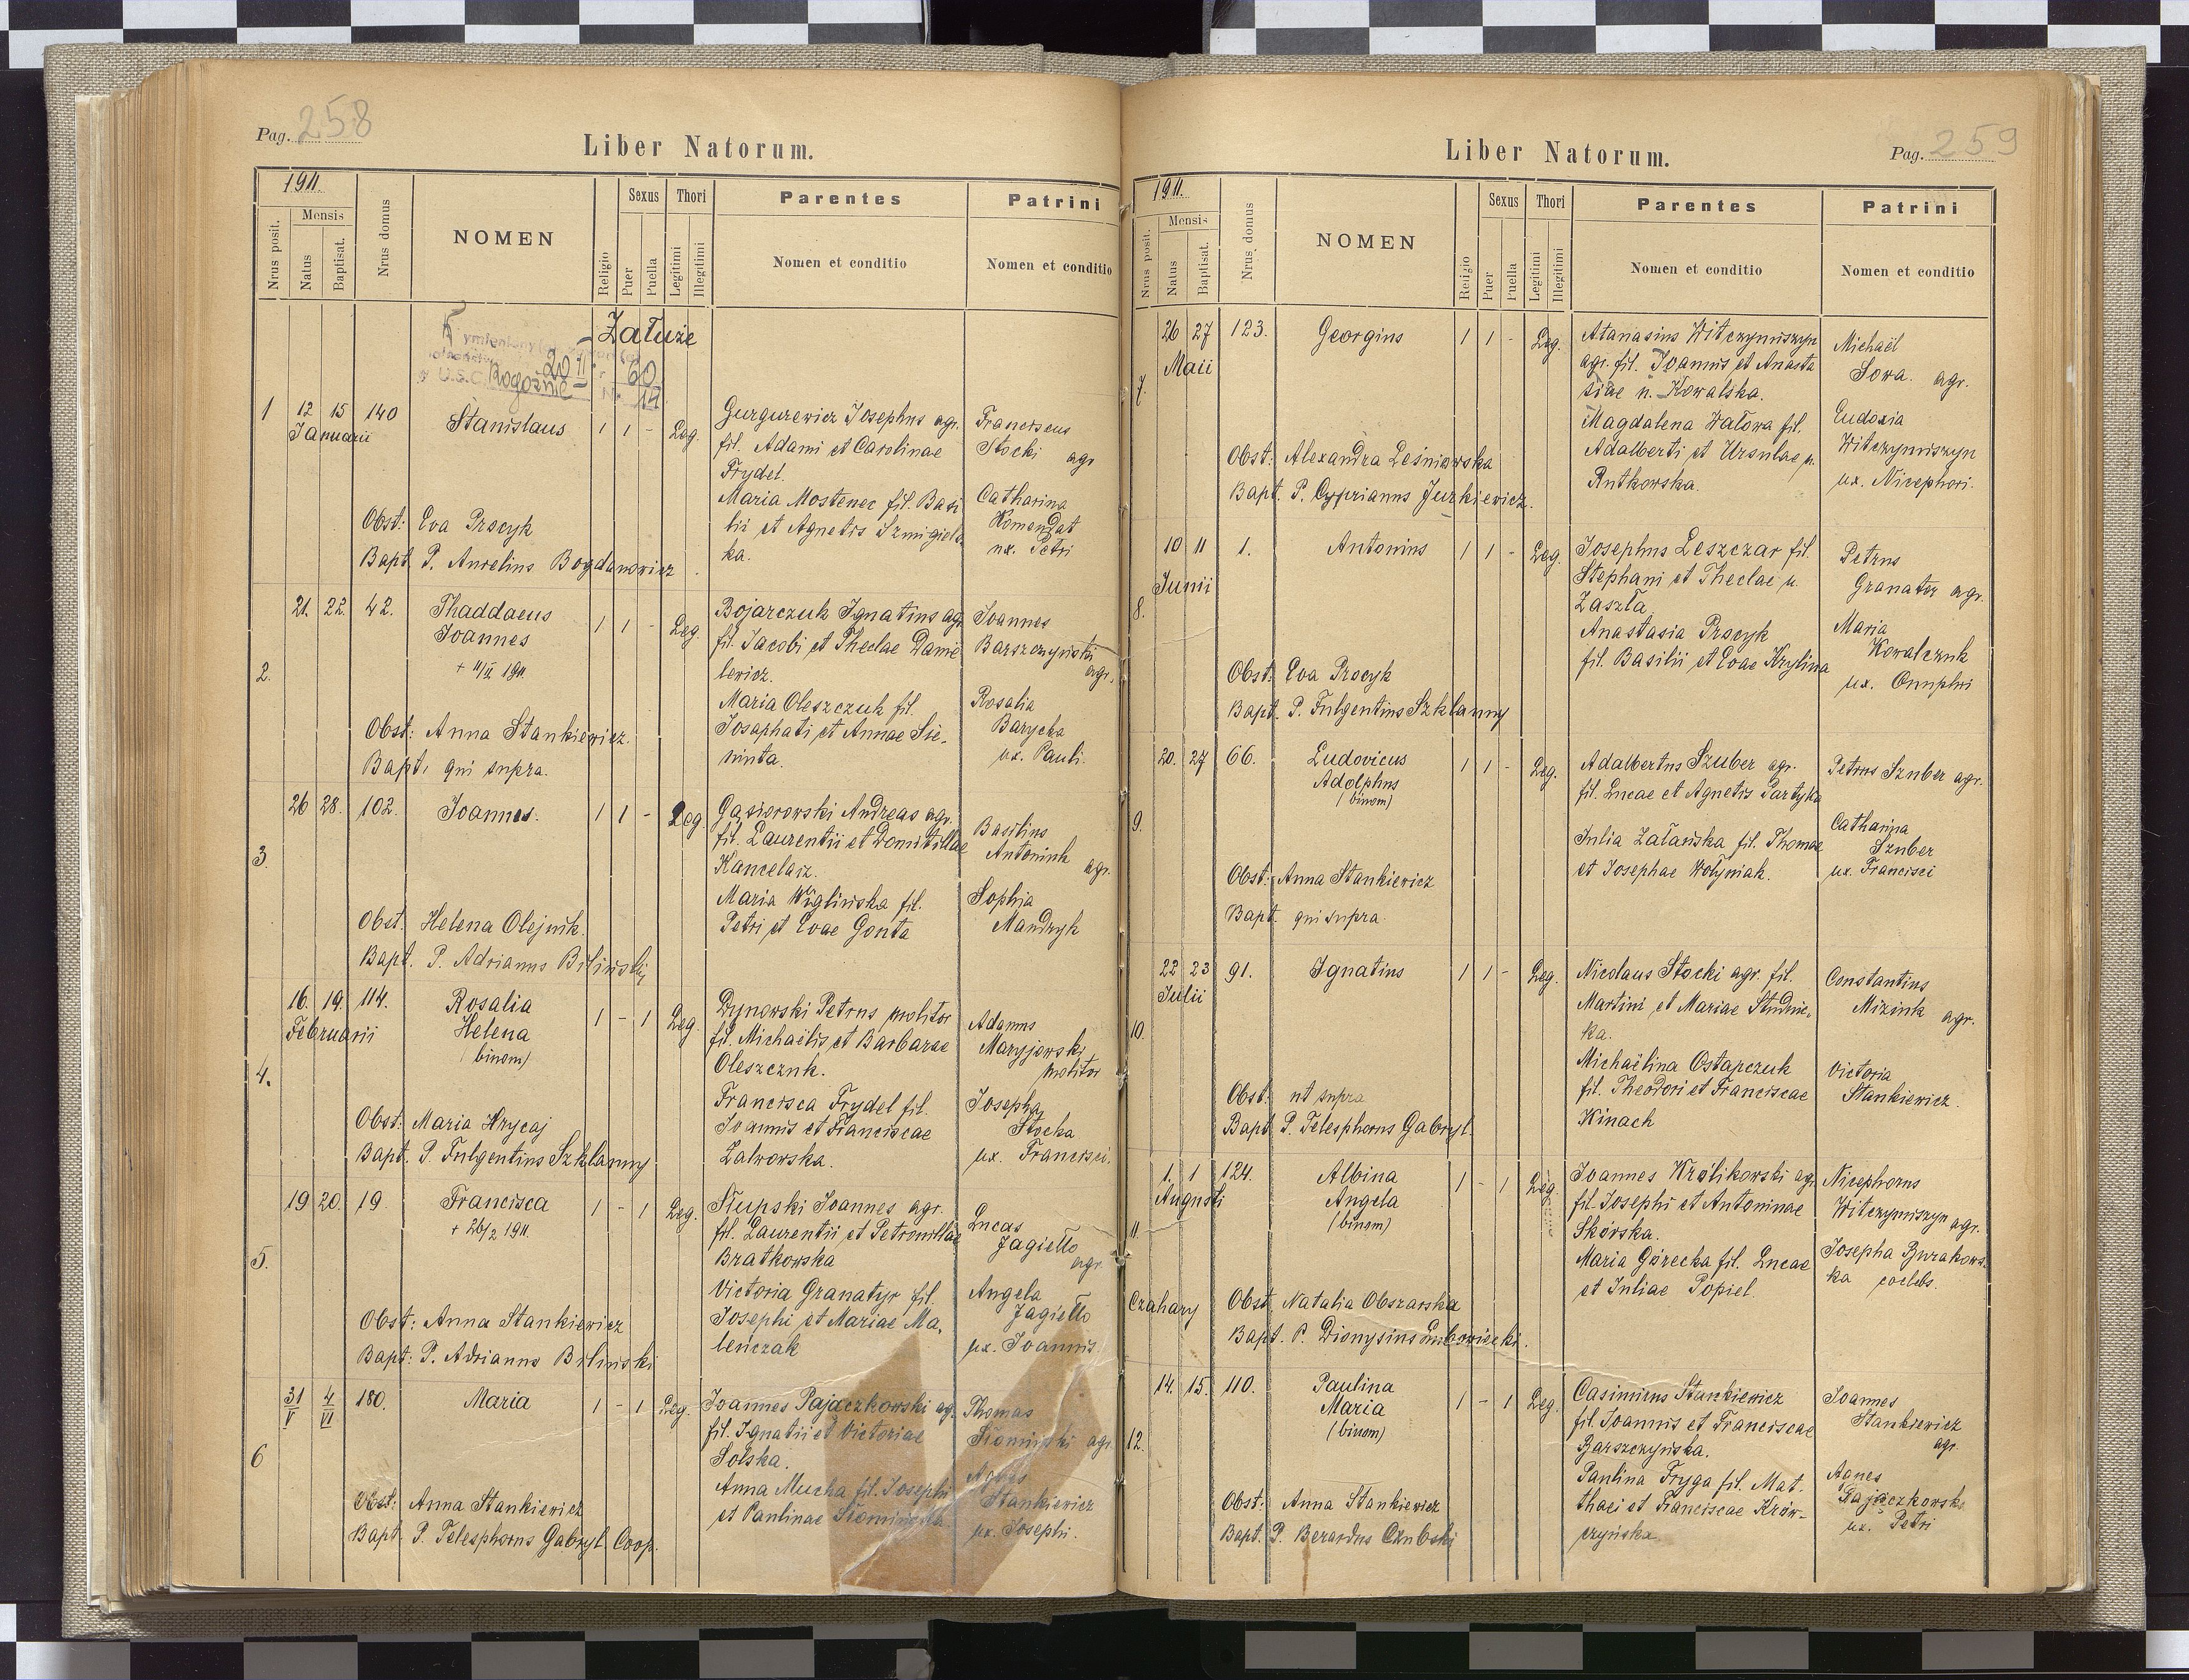 Pag. 258
Liber Natorum.
1911.
Nrus posit.
Mensis
Natus
Baptisat.
Nrus domus
NOMEN
Religio
Sexus
Puer
Puella
Thori
Legitimi
Illegitimi
Parentes
Nomen et conditio
Patrini
Nomen et conditio
Załuże
20 II 60
U.S.C. Rogoźnie Nr 14
1 12 15 140 Stanislaus 1 1 - Leg.
Januarii
Gurgurewicz Josephus agr.
fil. Adami et Carolinae
Frydel.
Maria Mostenec fil. Basi
lii et Agnetis Szmigiels
ka.
Franciscus
Stocki agr
Catharina
Komendat
ux. Petri
Obst: Eva Procyk
Bapt. P. Aurelius Bogdanowicz
2. 21. 22. 42. Thaddaeus
Joannes 1 1 - Leg.
+ 11/II 1911
Bojarczuk Ignatius agr
fil. Jacobi et Theclae Danie
lewicz.
Maria Oleszczuk fil.
Josaphati et Annae Sie-
ninta.
Joannes
Barszczyński
agr.
Rosalia
Barycka
ux. Pauli.
Obst: Anna Stankiewicz.
Bapt. qui supra.
3. 26 28. 102. Joannes. 1 1 - Leg
Gąsiorowski Andreas agr.
fil. Laurentii et Domitillae
Kancelarz.
Maria Wiglińska fil.
Petri et Evae Gonta
Basilius
Antoniuk
agr.
Sophia
Mandryk
Obst. Helena Olejnik.
Bapt. P. Adrianus Biliński
4. 16. 19. 114. Rosalia
Februarii Helena 1 - 1 Leg.
(binom)
Dynowski Petrus molitor
fil. Michaëlis et Barbarae
Oleszczuk.
Francisca Frydel fil.
Joannis et Franciscae
Zalworska.
Adamus
Maryjowski
molitor
Josepha
Stocka
ux. Francisci.
Obst: Maria Hrycaj
Bapt. P. Fulgentius Szklanny
5. 19 20. 19. Francisca 1 - 1 Leg.
+ 26/2 1911.
Słupski Joannes agr.
fil. Laurentii et Petronillae
Bratkowska
Victoria Granatyr fil.
Josephi et Mariae Ma-
leńczak
Lucas
Jagiełło
agr.
Angela
Jagiełło
ux. Joannis
Obst: Anna Stankiewicz
Bapt: P. Adrianus Biliński
6 31/V 4/VI 180. Maria 1 - 1 Leg.
Joannes Pajączkowski ag.
fil. Ignatii et Victoriae
Solska.
Anna Mucha fil. Josephi
et Paulinae Siomińska
Thomas
Siomiński agr.
Agnes
Stankiewicz
ux. Josephi.
Obst: Anna Stankiewicz
Bapt. P. Telesphorus Gabryl Coop.
Liber Natorum.
Pag. 259
1911.
Nrus posit.
Mensis
Natus
Baptisat.
Nrus domus
NOMEN
Religio
Sexus
Puer
Puella
Thori
Legitimi
Illegitimi
Parentes
Nomen et conditio
Patrini
Nomen et conditio
7. 26 27 123. Georgius 1 1 - Leg.
Maii
Atanasius Witczyniszyn
agr. fil. Joannis et Anasta
siae n. Kowalska.
Magdalena Wałowa fil.
Adalberti et Ursulae n.
Rutkowska.
Michaël
Sowa. agr.
Eudoxia
Witczyniszyn
ux. Nicephori.
Obst: Alexandra Leśniowska
Bapt. P. Cyprianus Jurkiewicz.
8. 10 11 1. Antonius 1 1 - Leg.
Junii
Josephus Leszczar fil.
Stephani et Theclae n.
Zaszła
Anastasia Procyk
fil. Basilii et Evae Krylina
Petrus
Granatoz agr.
Maria
Kowalczuk
ux. Onuphri
Obst. Eva Procyk
Bapt. P. Fulgentius Szklanny
9. 20. 27 66. Ludovicus 1 1 - Leg.
Adolphus
(binom)
Adalbertus Szuber agr.
fil. Lucae et Agnetis Partyka
Julia Załańska fil. Thomae
et Josephae Wołyniak.
Petrus Szuber agr.
Catharina
Szuber
ux. Francisci
Obst: Anna Stankiewicz
Bapt. qui supra.
10. 22 23 91. Ignatius 1 1 - Leg.
Julii
Nicolaus Stocki agr. fil.
Martini et Mariae Studnic-
ka.
Michaëlina Ostapczuk
fil. Theodori et Franciscae
Kinach
Constantius
Miziuk agr.
Victoria
Stankiewicz.
Obst. ut supra
Bapt. P. Telesphorus Gabryl.
11. 1. 1 124. Albina 1 - 1 Leg.
Augusti Angela
(binom)
Joannes Królikowski agr
fil. Josephi et Antoninae
Skórska.
Maria Górecka fil. Lucae
et Juliae Popiel.
Nicephorus
Witczyniszyn agr.
Josepha Burakows-
ka coelebs.
Czahary Obst. Natalia Obszarska
Bapt. P. Dionysius Lubowiecki.
12. 14. 15. 110. Paulina
Maria 1 - 1 Leg.
(binom)
Casimirus Stankiewicz
fil. Joannis et Franciscae
Barszczyńska.
Paulina Fryga fil. Mat-
thaei et Franciscae Krów-
czyńska
Joannes
Stankiewicz
agr.
Agnes
Pajączkowska
ux. Petri
Obst: Anna Stankiewicz
Bapt. P. Berardus Czubski